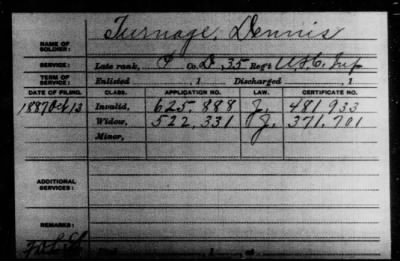 Turnage, Dennis
NAME OF SOLDIER:
SERVICE: Late rank, P Co. D, 35 Reg't U.S.C. Inf
TERM OF SERVICE: Enlisted , 1 Discharged , 1
DATE OF FILING. CLASS. APPLICATION NO. LAW. CERTIFICATE NO.
1887 Oct 13 Invalid, 625,888 J. 481,933
Widow, 522,331 J. 371,701
Minor,
ADDITIONAL SERVICES:
REMARKS: